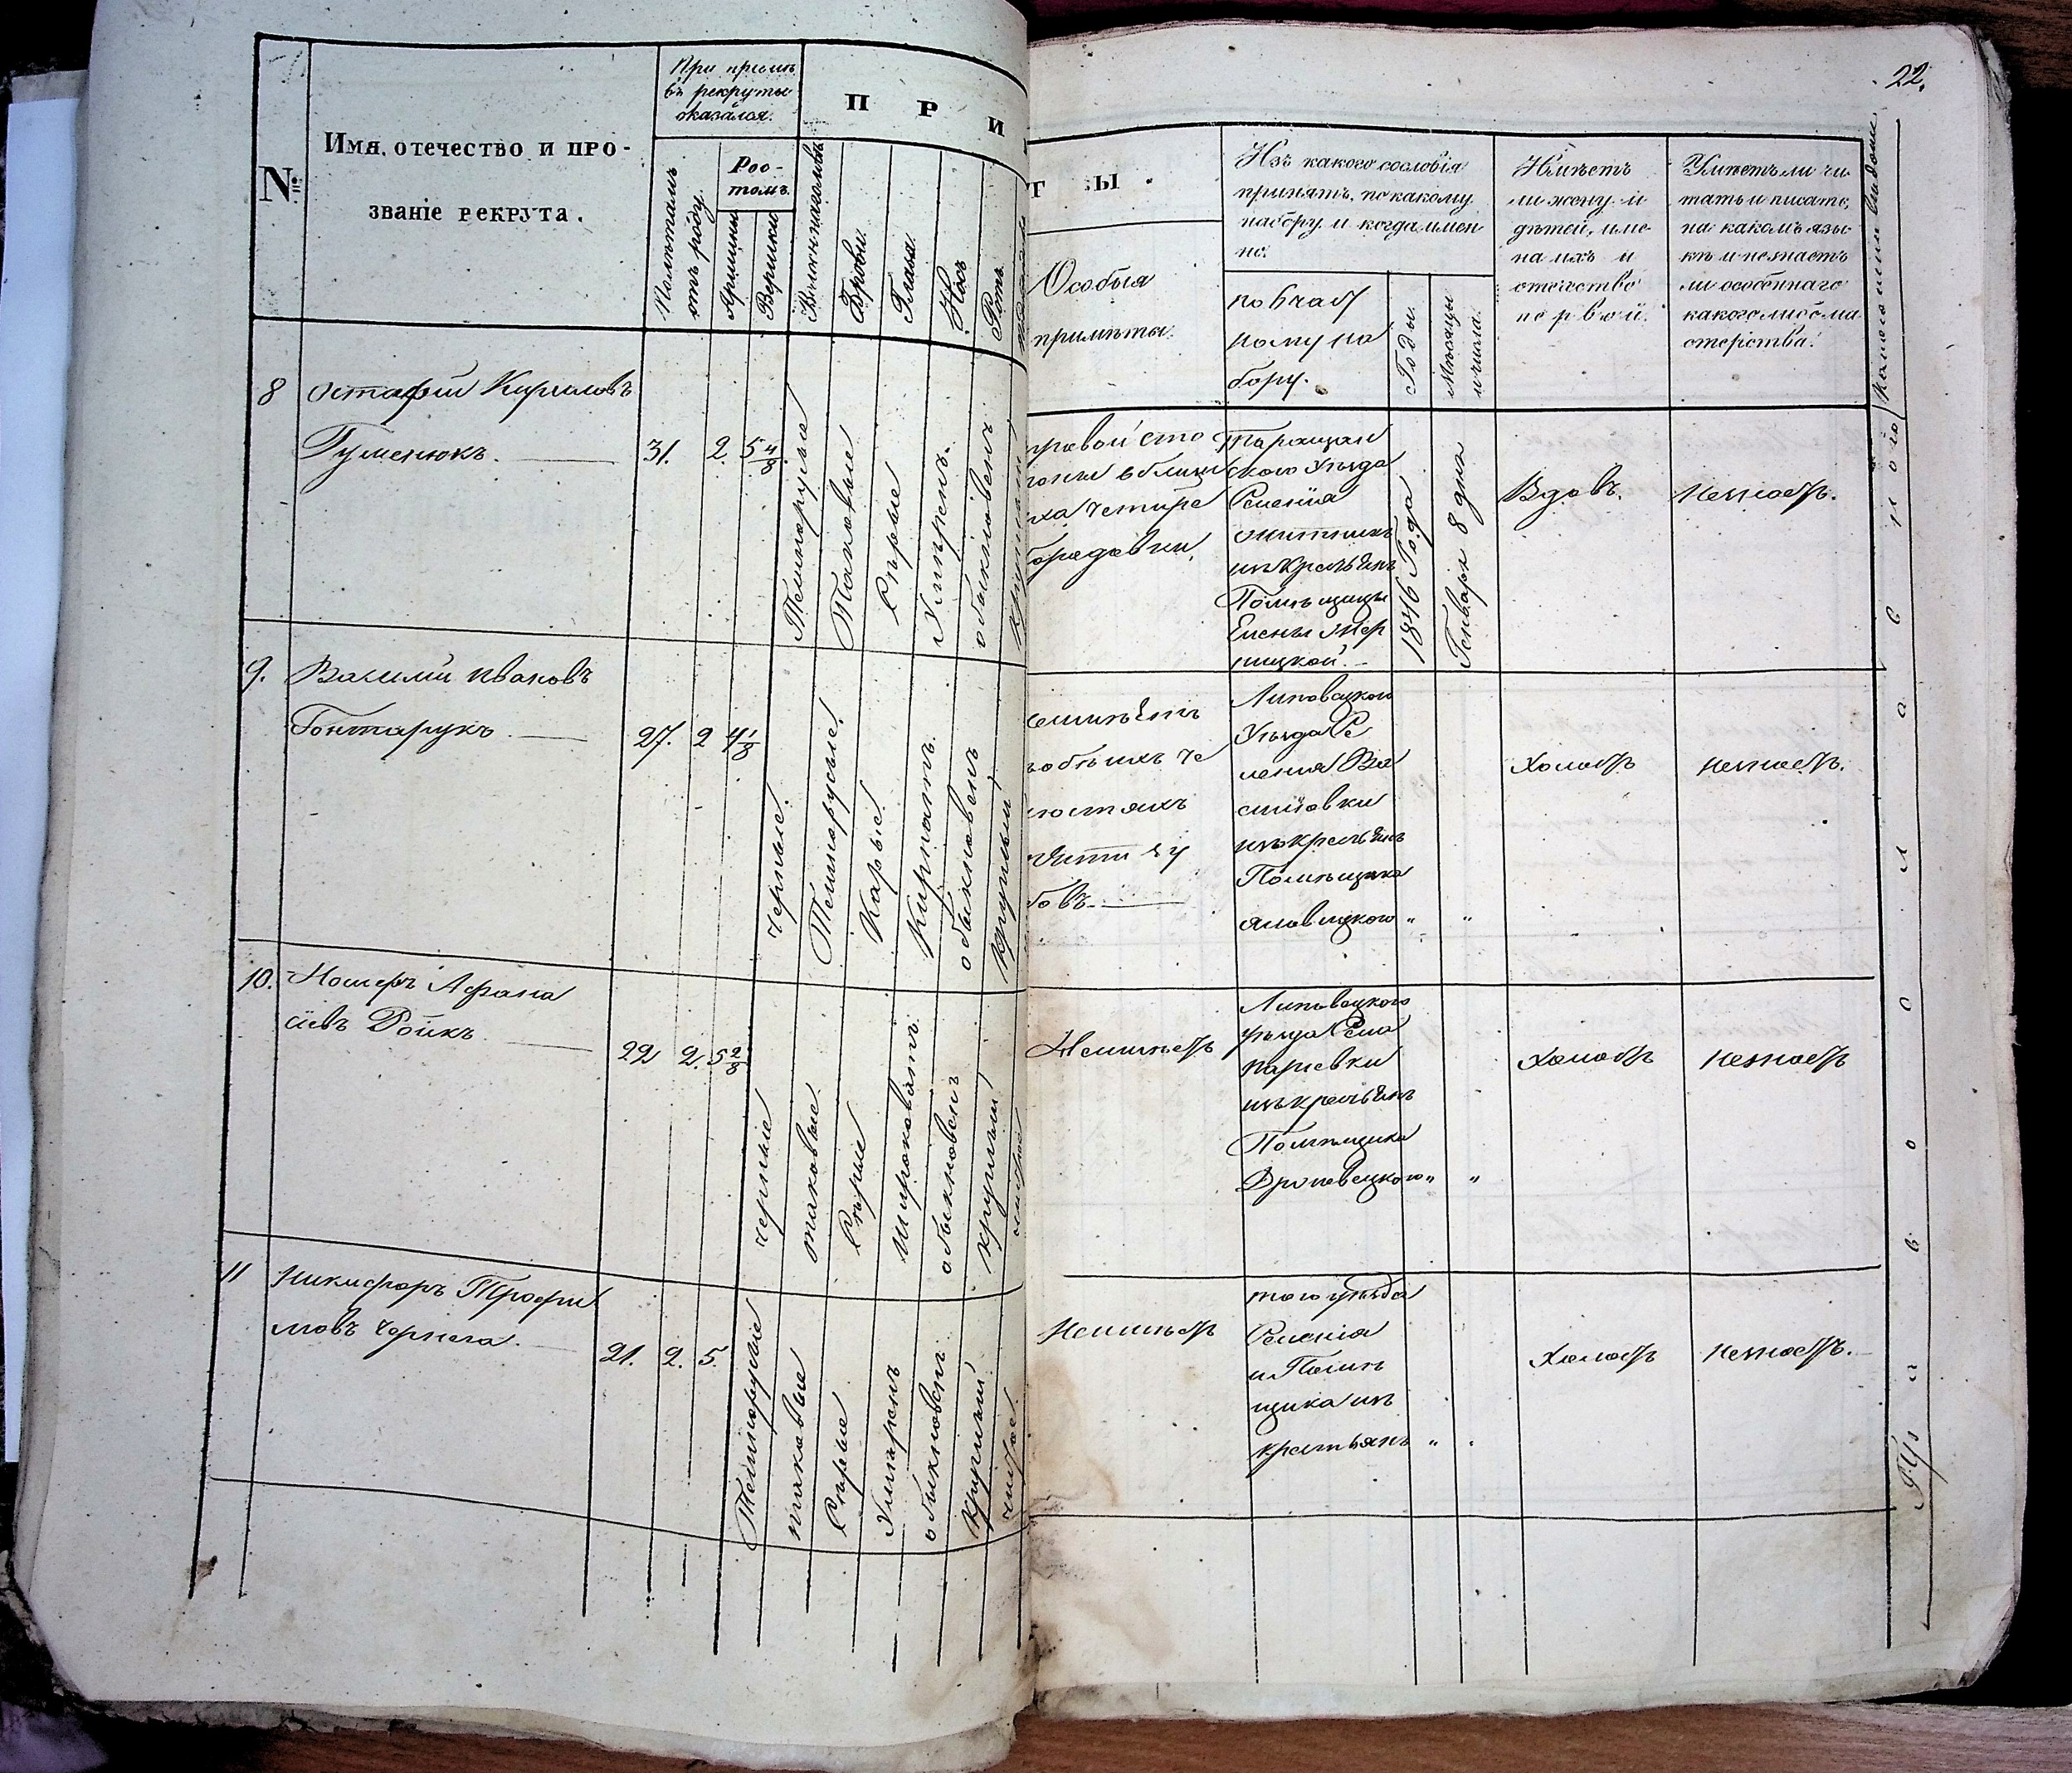 22.
№
Имя, отечество и про-
званіе рекрута.
При пріемѣ
въ рекруты
оказался.
Полѣтамъ
отъ роду.
Рос-
томъ
Аршины
Вершки
П Р И
Брови.
Глаза.
Носъ
Ротъ
Т Ы.
Особыя
примѣты.
Изъ какого сословія
принятъ, по какому
набору и когда имен-
но.
по 6 част
ному на
бору.
Годы.
Мѣсяцы
и числа.
Имѣетъ
ли жену и
дѣтей, име-
на ихъ и
отчество
первой.
Умѣетъ ли чи-
тать и писать,
на какомъ язы-
кѣ и незнаетъ
ли особеннаго
какого либо ма
стерства.
8
Остафій Кириловъ
Гуменюкъ.
31. 2. 5 4/8
Темнорусые
Таковые
Сѣрые
Умѣрен.
обыкновен
правой сто
роны вблизи
четире
бородавки,
Таращан
ского уѣзда
Селенія
изъ крестьянъ
Помѣщицы
Елены
1846 Года
Генваря 8 дня
Вдовъ.
незнаетъ.
9.
Василий Ивановъ
Гонтарукъ.
27. 2 4 1/8
черные.
Темнорусые.
Карые.
Кирпатъ.
обыкновен
круглый
Липовецкого
Уѣзда Се
ленія Ва
силіовки
изъ крестьянъ
Помѣщика
Яловицкого " "
Холостъ
незнаетъ.
10.
Іосифъ Афана
сіевъ Роикъ.
22 2. 5 2/8
черные
таковые
Сѣрые
Широковатъ
обыкновен
круглый
Неимѣетъ
Липовецкого
уѣзда Села
Паріевки
изъ крестьянъ
Помѣщика
" "
Холостъ
незнаетъ
11
Никифоръ Трофи
мовъ Чорнега.
21. 2. 5.
Темнорусые
таковые
Сѣрые
Умѣрен
обыкновен
круглый
чистое.
Неимѣетъ
того уѣзда
Селенія
и Помѣ
щика изъ
крестьянъ "
Холостъ
незнаетъ.